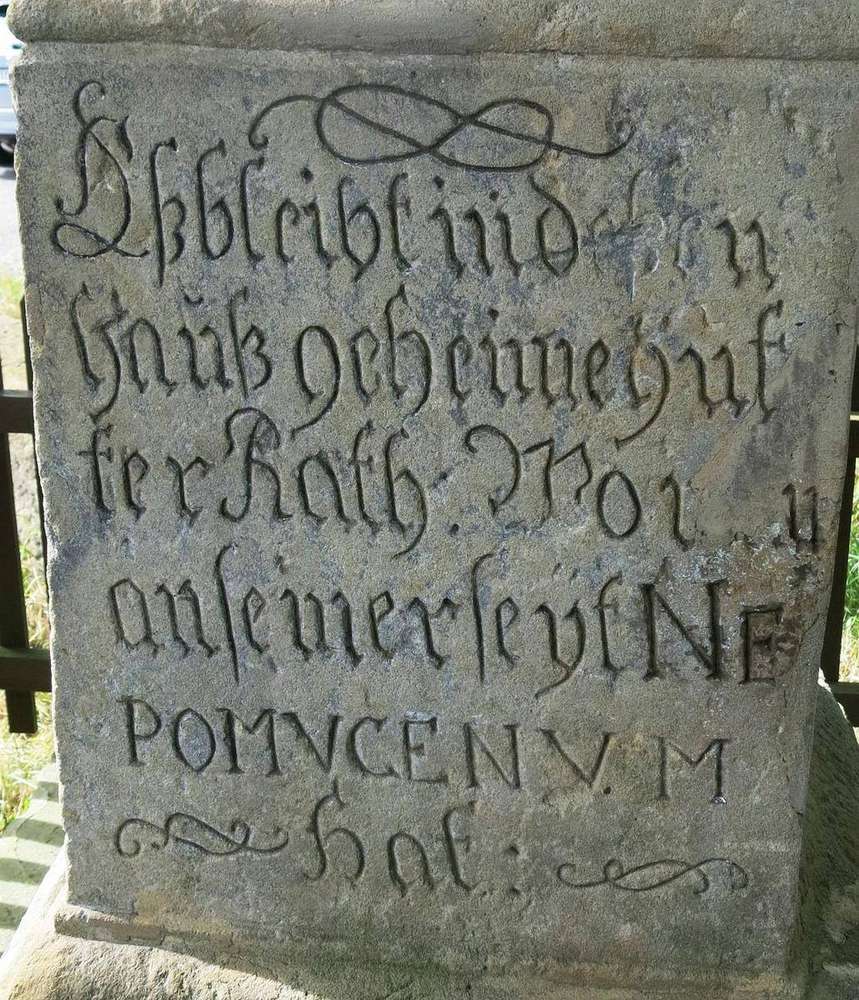 Eß bleibt in deßen
Hauß geheime gut
ter Rath: Wo
an seiner seyt NE
POMVCENV. M
hat: